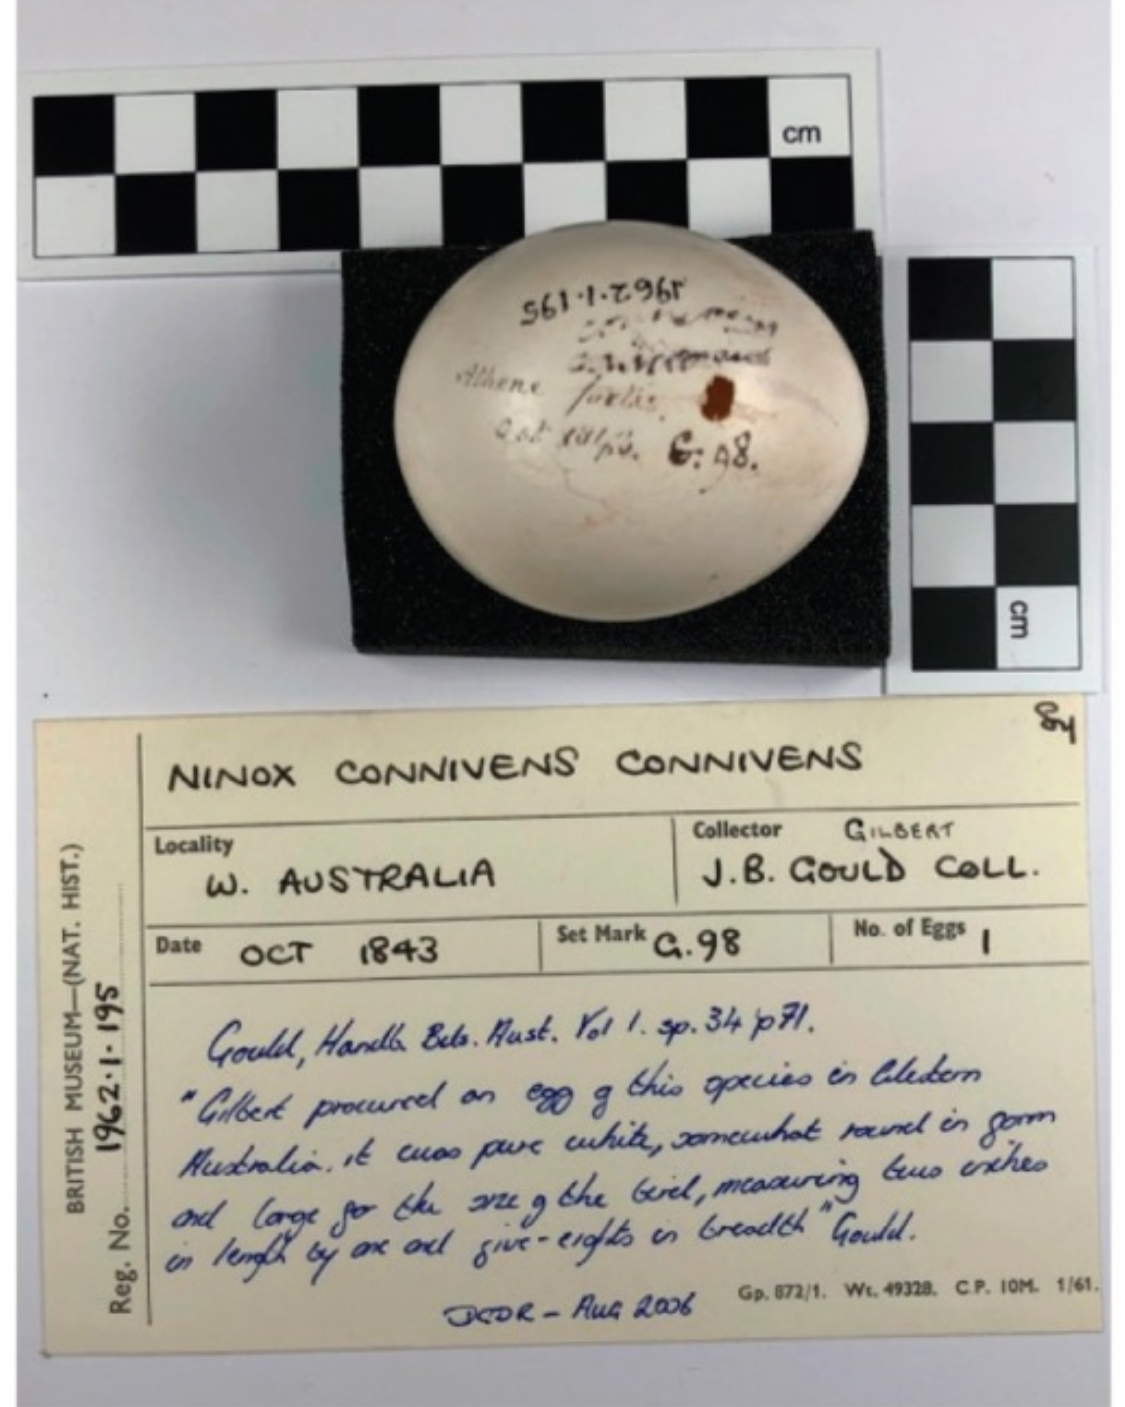 cm
1962.1.195
Athene fortis.
Oct G.98.
cm
84
NINOX CONNIVENS CONNIVENS
Locality
W. AUSTRALIA
Collector GILBERT
J.B. GOULD COLL.
Date OCT 1843
Set Mark G.98
No. of Eggs 1
BRITISH MUSEUM—(NAT. HIST.)
Reg. No. 1962.1.195
Gould, Handb. Bds. Aust. Vol 1. sp. 34 p71.
"Gilbert procured an egg of this species in Western
Australia. it was pure white, somewhat round in form
and large for the size of the bird, measuring two inches
in length by one and five-eights in breadth" Gould.
Aug 2006
Gp. 872/1. Wt. 49328. C.P. 10M. 1/61.